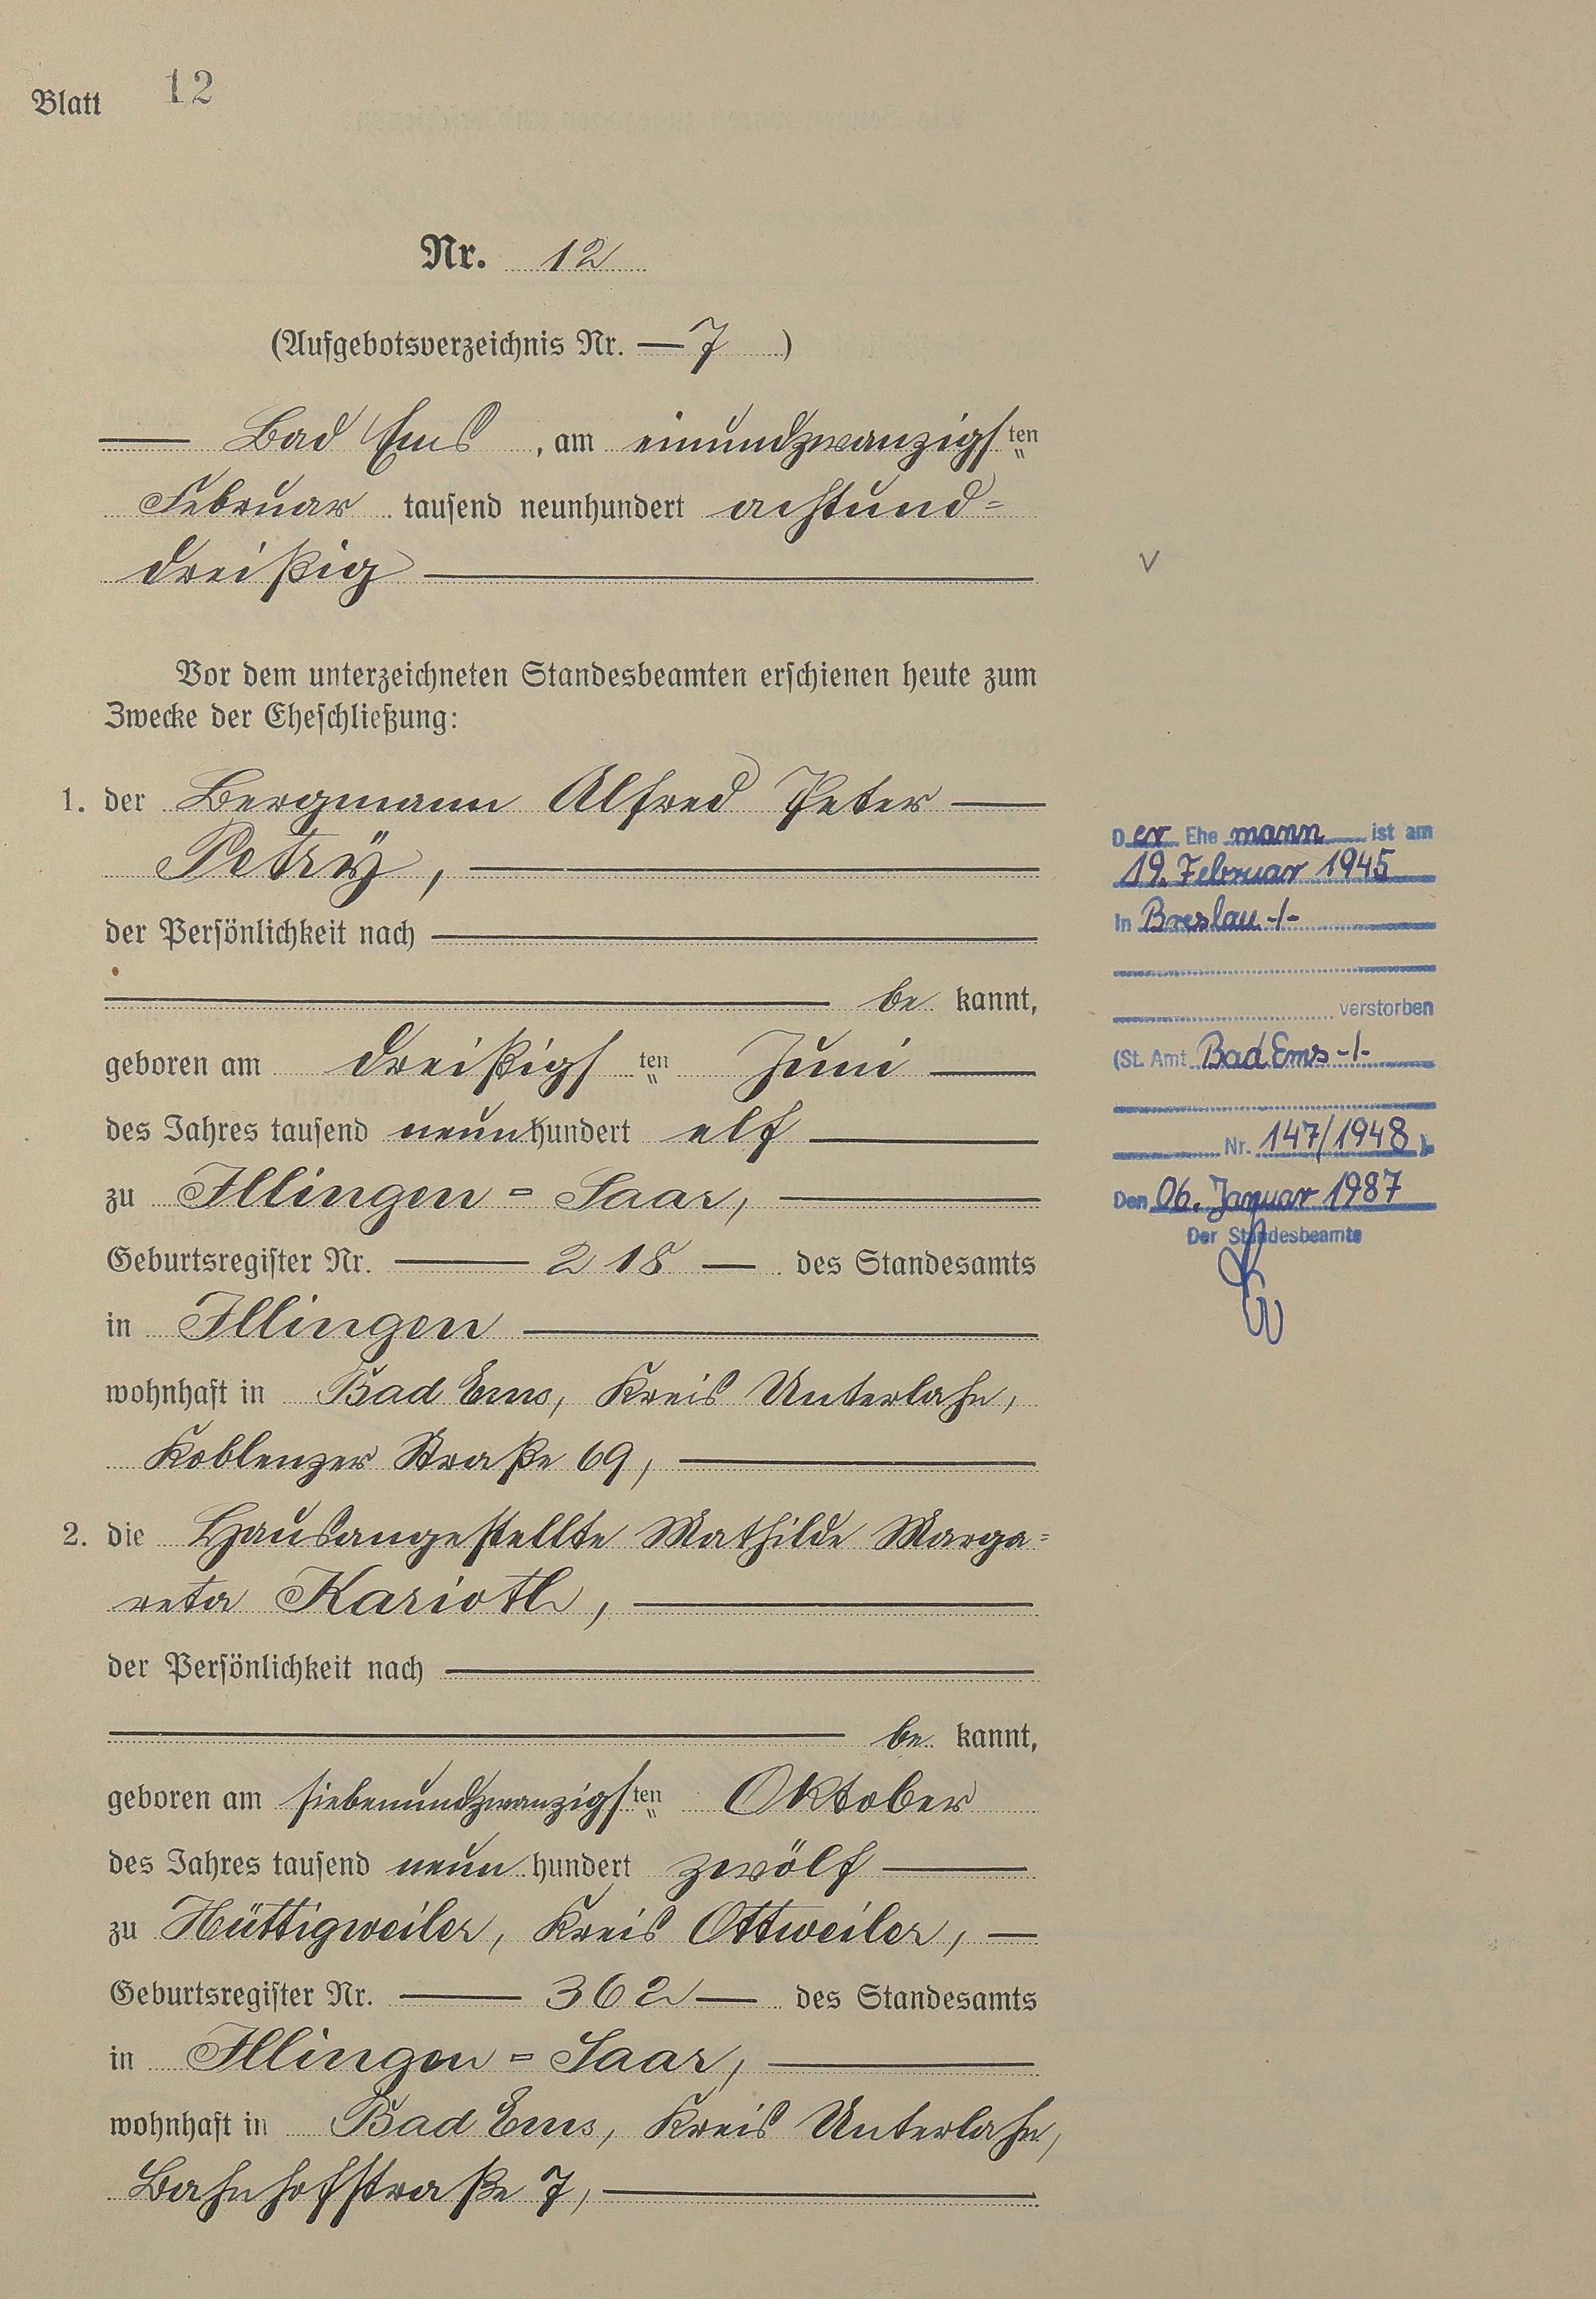 Blatt 12
Nr. 12
(Aufgebotsverzeichnis Nr. — 7 )
— Bad Ems, am einundzwanzigsten
Februar tausend neunhundert achtund=
dreißig —
Vor dem unterzeichneten Standesbeamten erschienen heute zum
Zwecke der Eheschließung:
1. der Bergmann Alfred Peter —
Petry, —
der Persönlichkeit nach —
— be kannt,
geboren am dreißigsten Juni —
des Jahres tausend neunhundert elf —
zu Illingen = Saar, —
Geburtsregister Nr. — 218 — des Standesamts
in Illingen —
wohnhaft in Bad Ems, Kreis Unterlahn,
Koblenzer Straße 69, —
2. die Hausangestellte Mathilde Marga=
reta Karioth, —
der Persönlichkeit nach —
— be kannt,
geboren am siebenundzwanzigsten Oktober
des Jahres tausend neun hundert zwölf —
zu Hüttigweiler, Kreis Ottweiler, —
Geburtsregister Nr. — 362 — des Standesamts
in Illingen = Saar, —
wohnhaft in Bad Ems, Kreis Unterlahn,
Bahnhofstraße 7, —
Der Ehemann ist am
19. Februar 1945
in Breslau -/-
verstorben
(St. Amt Bad Ems -/-
Nr. 147/1948)
Den 06. Januar 1987
Der Standesbeamte